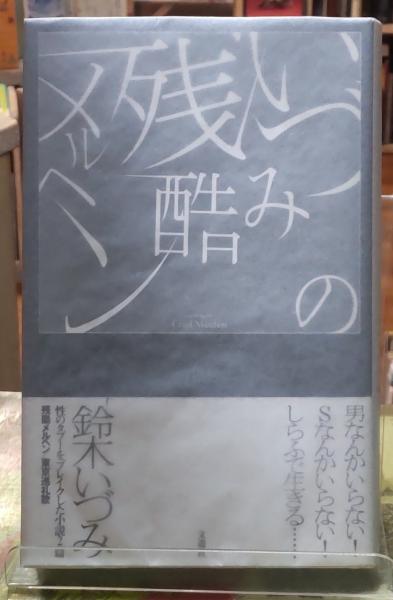 いづみの
残酷
メルヘン
Cruel Märchen
男なんかいらない!
Sなんかいらない!
しらふで生きる……
鈴木いづみ
性のタブーをブレイクした小説2篇
残酷メルヘン/東京巡礼歌
文遊社